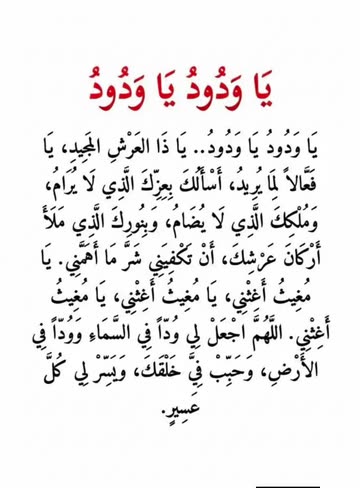 يَا وَدُودُ يَا وَدُودُ
يَا وَدُودُ يَا وَدُودُ.. يَا ذَا العَرْشِ المَجِيدِ، يَا
فَعَّالاً لِمَا يُرِيدُ، أَسْأَلُكَ بِعِزِّكَ الَّذِي لَا يُرَامُ،
وَمُلْكِكَ الَّذِي لَا يُضَامُ، وَبِنُورِكَ الَّذِي مَلَأَ
أَرْكَانَ عَرْشِكَ، أَنْ تَكْفِيَنِي شَرَّ مَا أَهَمَّنِي. يَا
مُغِيثُ أَغِثْنِي، يَا مُغِيثُ أَغِثْنِي، يَا مُغِيثُ
أَغِثْنِي. اللَّهُمَّ اجْعَلْ لِي وُدّاً فِي السَّمَاءِ وَوُدّاً فِي
الأَرْضِ، وَحَبِّبْ فِيَّ خَلْقَكَ، وَيَسِّرْ لِي كُلَّ
عَسِيرٍ.